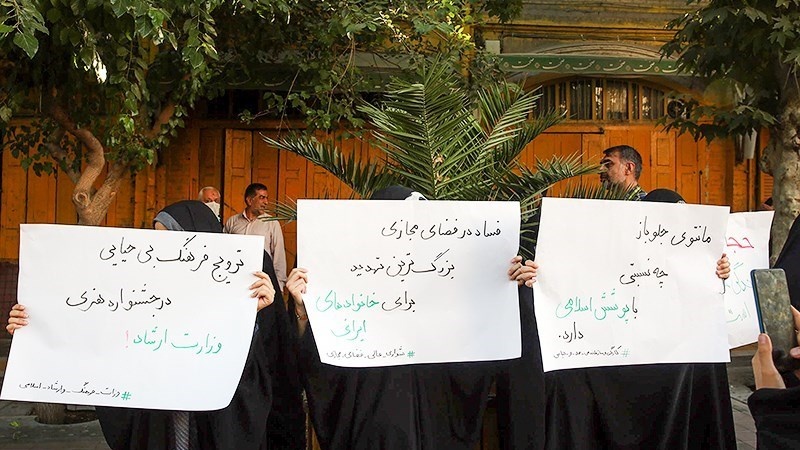 ترویج فرهنگ بی حیایی
در جشنواره هنری
وزارت ارشاد!
#وزرات_فرهنگ_و_ارشاد_اسلامی
فساد در فضای مجازی
بزرگ ترین تهدید
برای خانواده های
ایرانی
#شورای_عالی_فضای_مجازی
مانتوی جلو باز
چه نسبتی
با پوشش اسلامی
دارد.